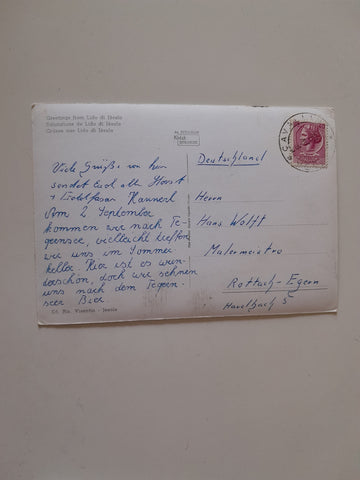 Greetings from Lido di Jesolo
Salutations de Lido di Jesolo
Grüsse aus Lido di Jesolo
Viele Grüße von hier
sendet Euch allen Horst
+ Hannerl
Am 2. September
kommen wir nach Te-
gernsee, vielleicht treffen
wir uns im Sommer-
keller. Hier ist es wun-
derschön, doch wir sehnen
uns nach dem Tegern-
seer Bier.
Ed. Ris. Visentin - Jesolo
Deutschland
Herrn
Hans Wolff
Malermeister
Rottach-Egern